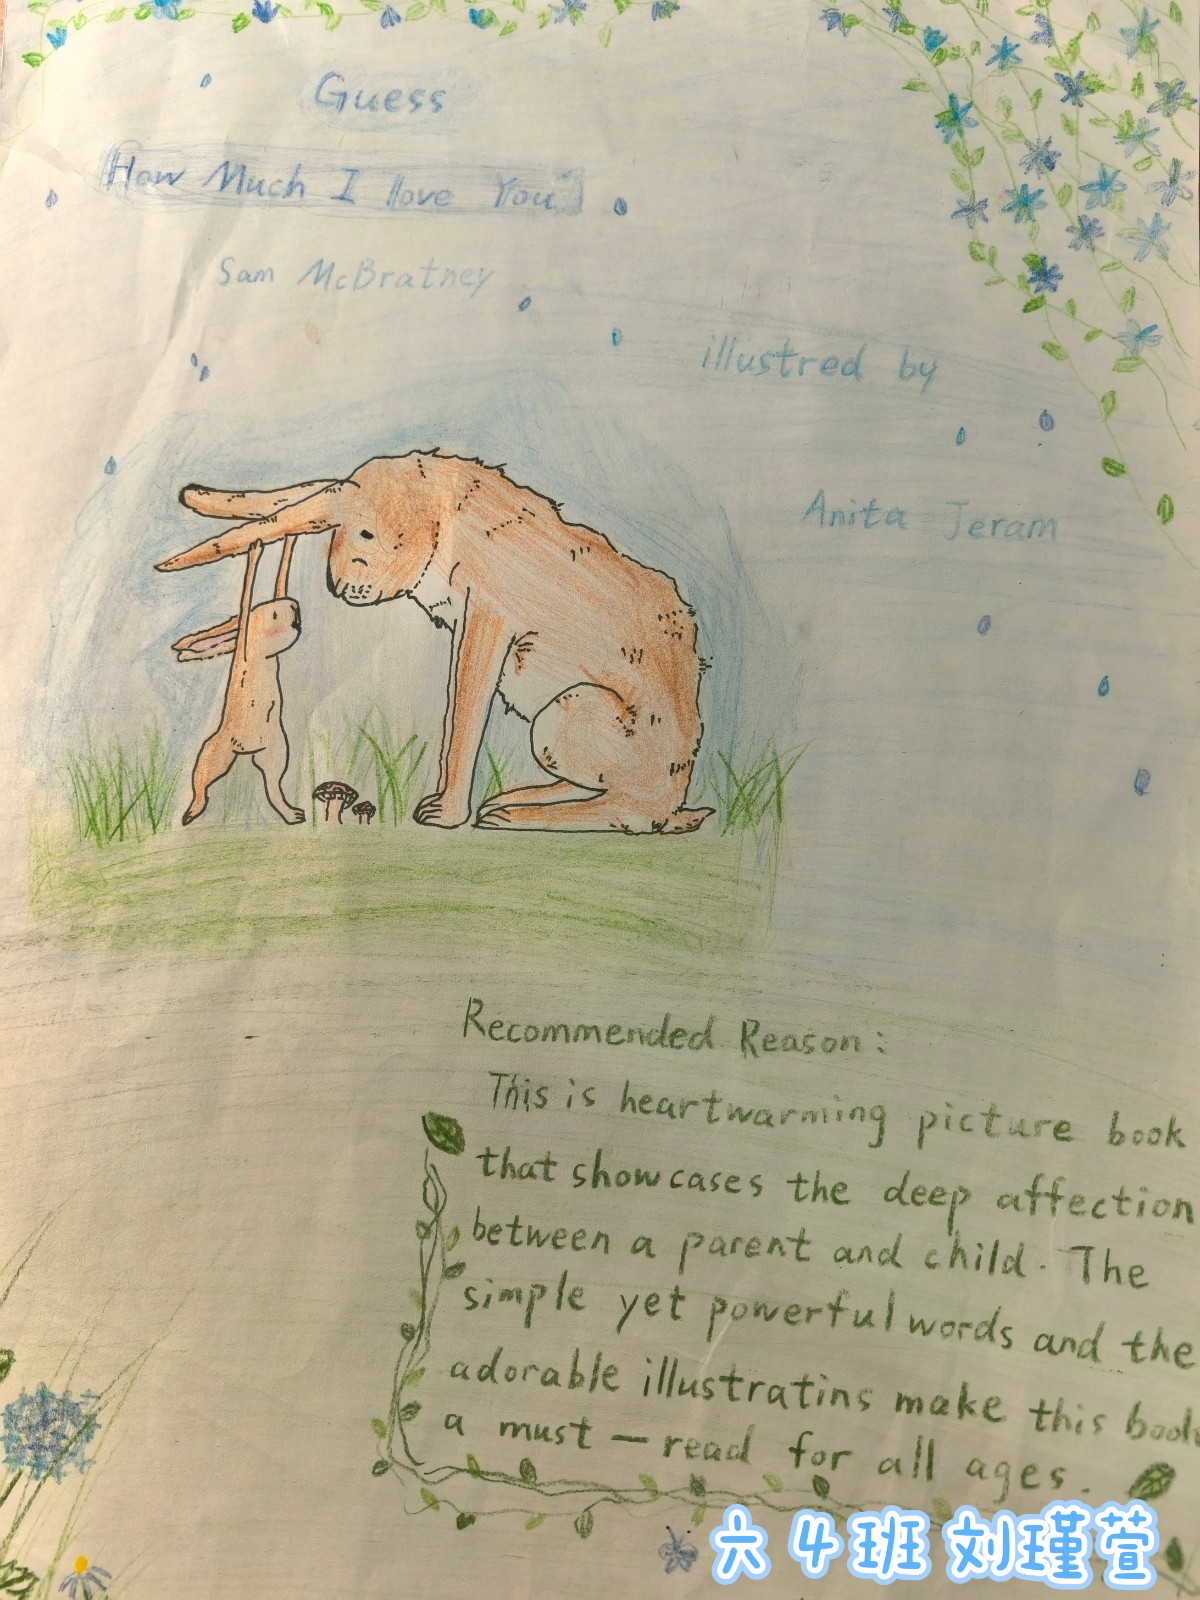 Guess
How Much I love You
Sam McBratney
illustred by
Anita Jeram
Recommended Reason:
This is heartwarming picture book
that showcases the deep affection
between a parent and child. The
simple yet powerful words and the
adorable illustratins make this book
a must — read for all ages.
六 4班 刘瑾萱